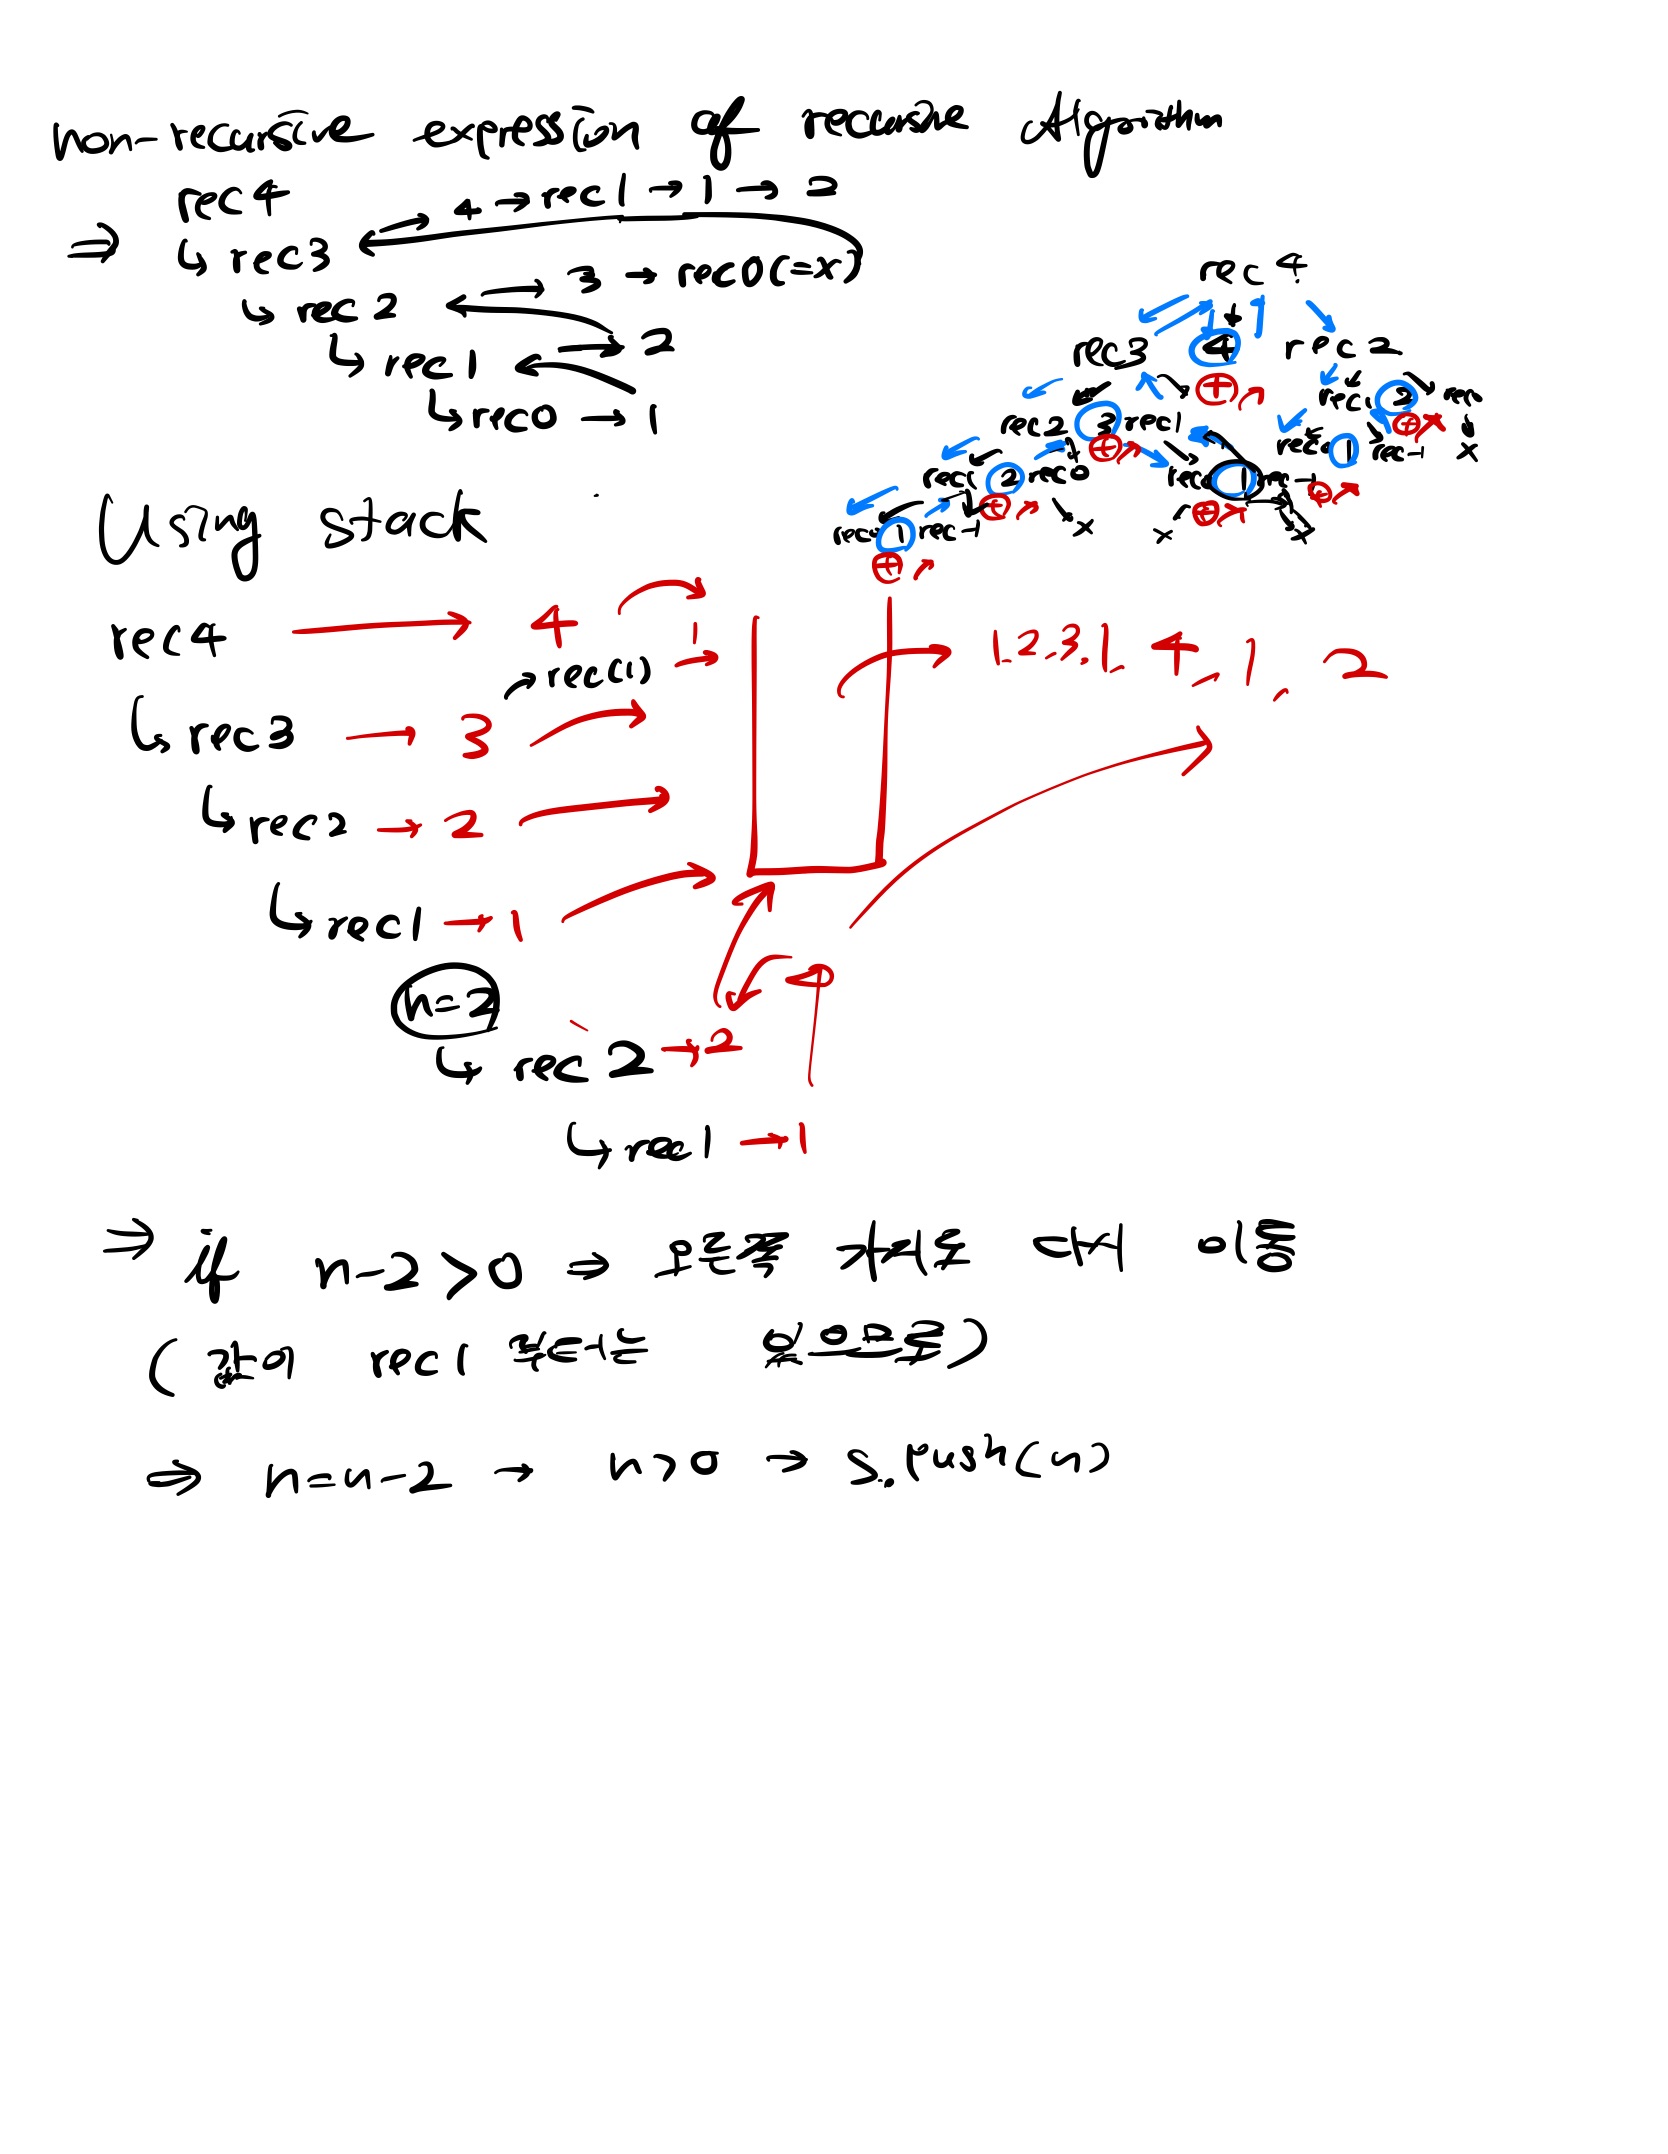 non-recursive expression of recursive Algorithm
rec4
→ 4 → rec1 → 1 → 2
⇒ ↳ rec3
↳ rec2 → 3 → rec0(=x)
↳ rec1 → 2
↳ rec0 → 1
rec4
rec3 4 rec2
+
rec2 3 rec1 rec1 2 rec0
+ +
rec1 2 rec0 rec0 1 rec-1 rec0 1 rec-1 x
+ + +
rec0 1 rec-1 x x x
+
Using stack
rec4 → 4 → 1
→ rec(1) →
→ 1. 2. 3. 1. 4, 1, 2
↳ rec3 → 3 →
↳ rec2 → 2 →
↳ rec1 → 1 →
n=2
↳ rec2 → 2
↳ rec1 → 1
⇒ if n-2>0 ⇒ 오른쪽 가지로 다시 이동
( 값이 rec1 부터는 있으므로)
⇒ n=n-2 → n>0 → s.push(n)